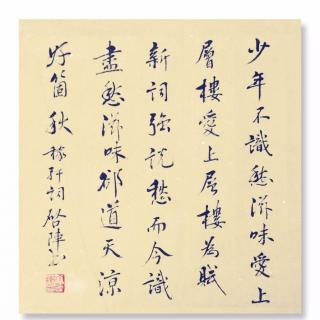 少年不識愁滋味愛上
層樓愛上層樓為賦
新詞強說愁而今識
盡愁滋味卻道天涼
好箇秋 稼軒詞 啓陣書